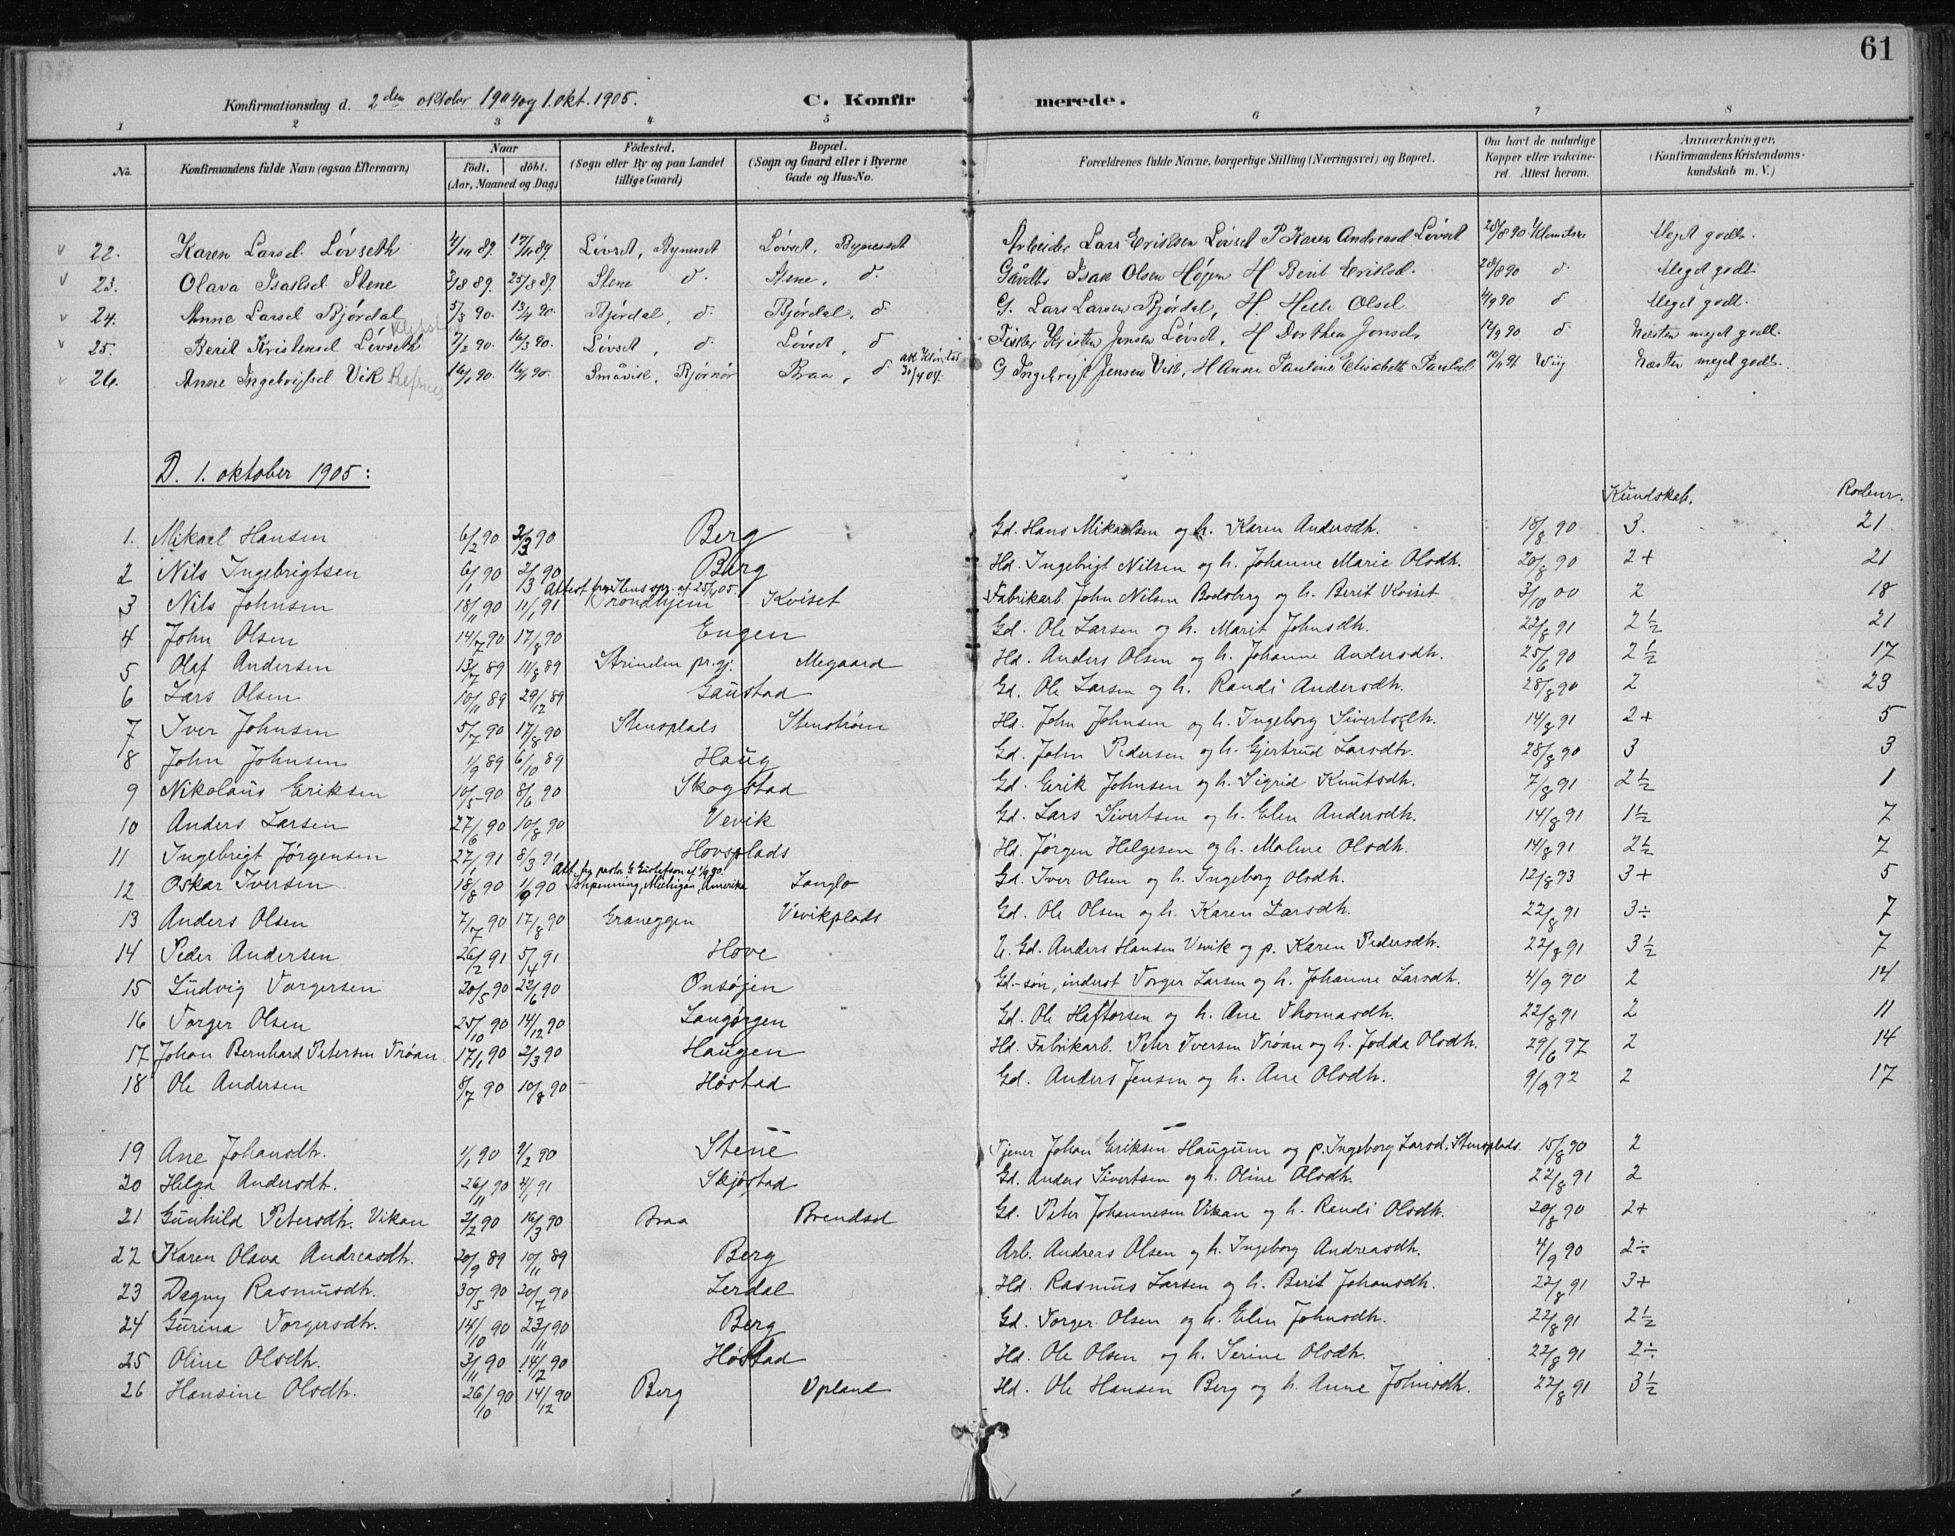 61
Konfirmationsdag d. 2den oktober 1904 og 1. okt. 1905. C. Konfir merede.
1 2 3 4 5 6 7 8
No. Konfirmandens fulde Navn (ogsaa Efternavn) Naar födt. döbt. (Aar, Maaned og Dag) Födested. (Sogn eller By og paa Landet tillige Gaard) Bopæl. (Sogn og Gaard eller i Byerne Gade og Hus-No. Forældrenes fulde Navne, borgerlige Stilling (Næringsvei) og Bopæl. Om havt de naturlige Kopper eller vakcineret. Attest herom. Anmærkninger, (Konfirmandens Kristendomskundskab m. V.)
22. Karen Larsd. Lövseth 4/10 89. 17/11 89. Lövset, Bynesset Lövset, Bynesset Arbeider Lars Eriksen Lövset P Karen Andreasd Lövset 28/8 90 Meget godt.
23. Olava Isaksd Stene 3/8 89. 25/8 89. Stene d. Stene, d. Isak Olsen Højen H Berit Eriksd. 28/8 90 d. Meget godt
24. Anne Larsd Bjórdal 5/3 90. 13/4 90. Bjórdal, d. Bjórdal, d. G. Lars Larsen Bjórdal, H. Olsd 4/9 90 d Meget godt.
25. Berit Kristensd Lövseth 7/2 90. 16/3 90. Lövset, d. Lövset, d Kristen Jensen Lövset, H Dorthea Jonsd. 12/9 90 d. Næsten meget godt.
26. Anne Ingebrigtsd Vik Refsnes 16/1 90. 16/1 90. Småvik, Bjórnór Braa, d G Ingebrigt Jensen Vik, H Anne Pauline Elisabeth Paulsd 10/11 91 Wiig Næsten meget godt.
D. 1. oktober 1905:
Kundskab. Rodenr.
1. Mikael Hansen 6/2 90 2/3 90 Berg Gd. Hans Mikaelsen og h. Karen Andersdh. 18/8 90 3. 21
2 Nils Ingebrigtsen 6/1 90 2/3 90 Berg Hd. Ingebrigt Nilsen og h. Johanne Marie Olsdh. 20/8 90 2+ 21
3 Nils Johnsen 18/11 90 11/1 91 Trondhjem Kvíset Fabrikarb. John Nilsen Bodsberg og h. Berit Kviset 3/10 00 2 18
4 John Olsen 14/7 90 17/8 90 Engen Gd. Ole Larsen og h. Marit Johnsdh. 22/8 91 2½ 21
5 Olaf Andersen 13/7 89 11/8 89 Strinden pr.gj. Megaard Hd. Anders Olsen og h. Johanne Andersdh. 25/6 90 2½ 17
6 Lars Olsen 10/11 89 29/12 89 Gaustad Gd. Ole Larsen og h. Randi Andersdh. 28/8 90 2 23
7 Iver Johnsen 5/7 90 17/8 90 Stensplads Stenstrøen Hd. John Johnsen og h. Ingeborg Sivertsdh. 14/8 91 2+ 5
8 John Johnsen 1/9 89 6/10 89 Haug Gd. John Pedersen og h. Gjertrud Larsdh. 28/8 90 3 3
9 Nikolaus Eriksen 10/5 90 8/6 90 Skogstad Gd. Erik Johnsen og h. Sigrid Knutsdh. 7/8 91 2½ 1
10 Anders Larsen 27/6 90 10/8 90 Vevik Gd. Lars Sivertsen og h. Elen Andersdh. 14/8 91 1½ 7
11 Ingebrigt Jørgensen 27/1 91 8/3 91 Hovsplads Hd. Jørgen Helgesen og h. Maline Olsdh. 14/8 91 2½ 7
12 Oskar Iversen 18/8 90 1/9 90 Ishpenning, Michigan, Amerika Langlo Gd. Iver Olsen og h. Ingeborg Olsdh. 12/8 93 3+ 5
13 Anders Olsen 7/7 90 17/8 90 Graneggen Vevikplads Gd. Ole Olsen og h. Karen Larsdh. 22/8 91 3÷ 7
14 Peder Andersen 26/2 91 5/4 91 Hove U. Gd. Anders Hansen Vevik og p. Karen Pedersdh. 22/8 91 3½ 7
15 Ludvig Torgersen 20/5 90 22/6 90 Onsøjen Gd.-søn, inderst Torger Larsen og h. Johanne Larsdh. 4/9 90 2 14
16 Torger Olsen 25/10 90 14/12 90 Langørgen Gd. Ole Haftorsen og h. Ane Thomasdh. 22/8 91 2 11
17 Johan Bernhard Petersen Trøan 17/1 90 2/3 90 Haugen Hd. Fabrikarb. Peter Iversen Trøan og h. Jodda Olsdh. 29/6 97 2 14
18 Ole Andersen 8/7 90 10/8 90 Høstad Gd. Anders Jensen og h. Ane Olsdh. 9/9 92 2 17
19 Ane Johansdh. 1/1 90 2/2 90 Stene Tjener Johan Eriksen Haugum og p. Ingeborg Larsd. Stensplads. 15/8 90 2
20 Helga Andersdh. 26/11 90 4/1 91 Skjøstad Gd. Anders Sivertsen og h. Oline Olsdh. 22/8 91 2
21 Gunhild Petersdh. Vikan 2/2 90 16/3 90 Braa Brendsel Gd. Peter Johannesen Vikan og h. Randi Olsdh. 20/8 90 2+
22 Karen Olava Andreasdh. 20/9 89 10/11 89 Berg Arb. Andreas Olsen og h. Ingeborg Andreasdh. 4/9 90 2÷
23 Dagny Rasmusdh. 30/5 90 20/7 90 Lerdal Hd. Rasmus Larsen og h. Berit Johansdh. 22/8 91 3+
24 Gurina Torgersdh. 14/10 90 23/11 90 Berg Gd. Torger Olsen og h. Elen Johnsdh. 22/8 91 2½
25 Oline Olsdh. 3/11 90 14/12 90 Høstad Hd. Ole Olsen og h. Serine Olsdh. 22/8 91 2÷
26 Hansine Olsdh. 26/10 90 14/12 90 Berg Opland Hd. Ole Hansen Berg og h. Anne Johnsdh. 22/8 91 3½